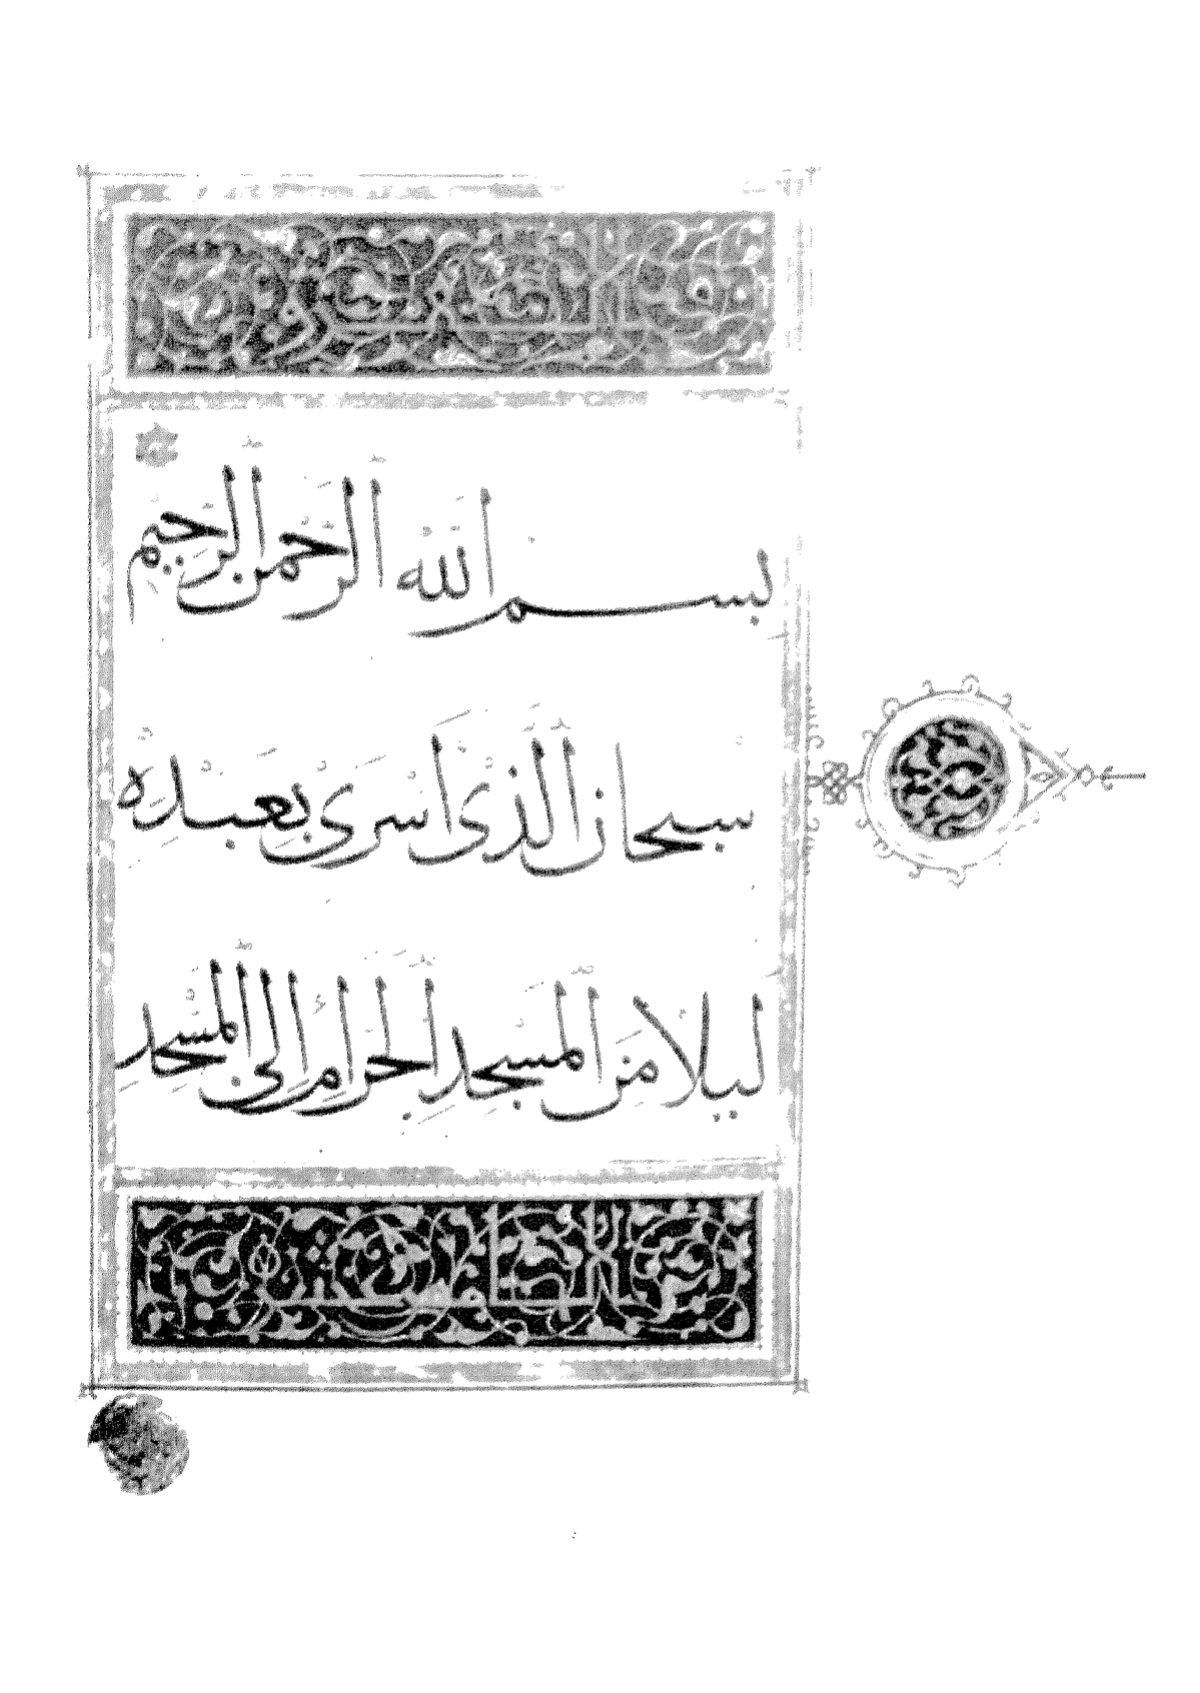 بسم الله الرحمن الرحيم
سبحان الذي اسرى بعبده
ليلا من المسجد الحرام الى المسجد